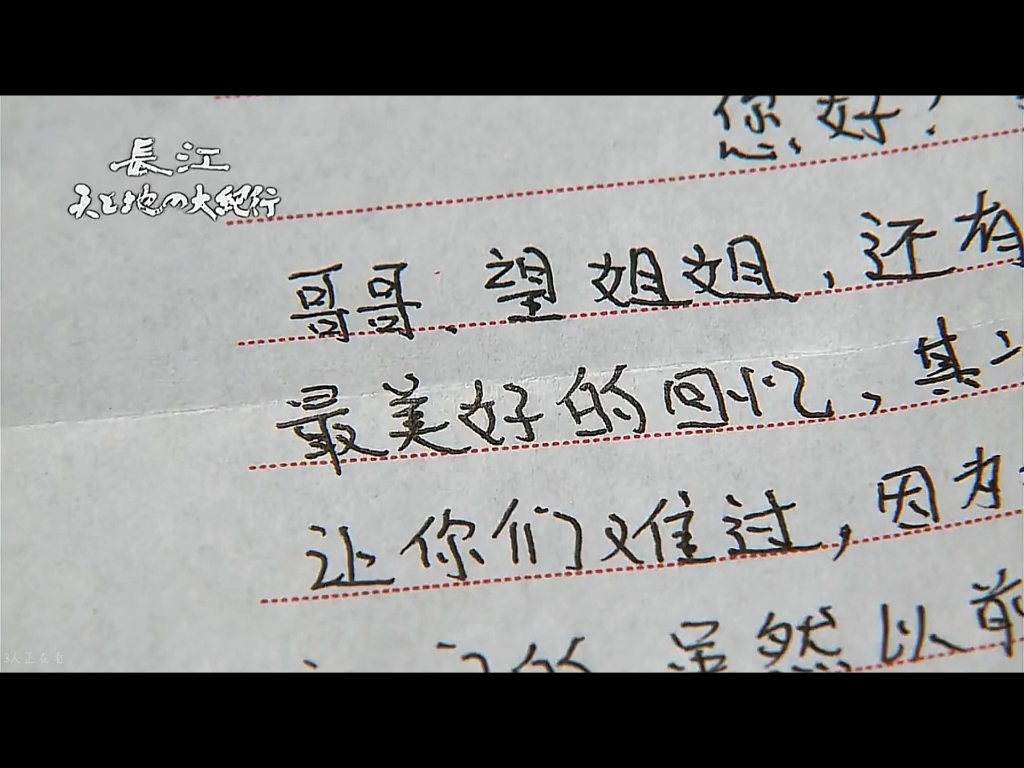 您好！
長江
天と地の大紀行
哥哥、望姐姐，还有
最美好的回忆，其
让你们难过，因为
的 虽然以前
3人正在看